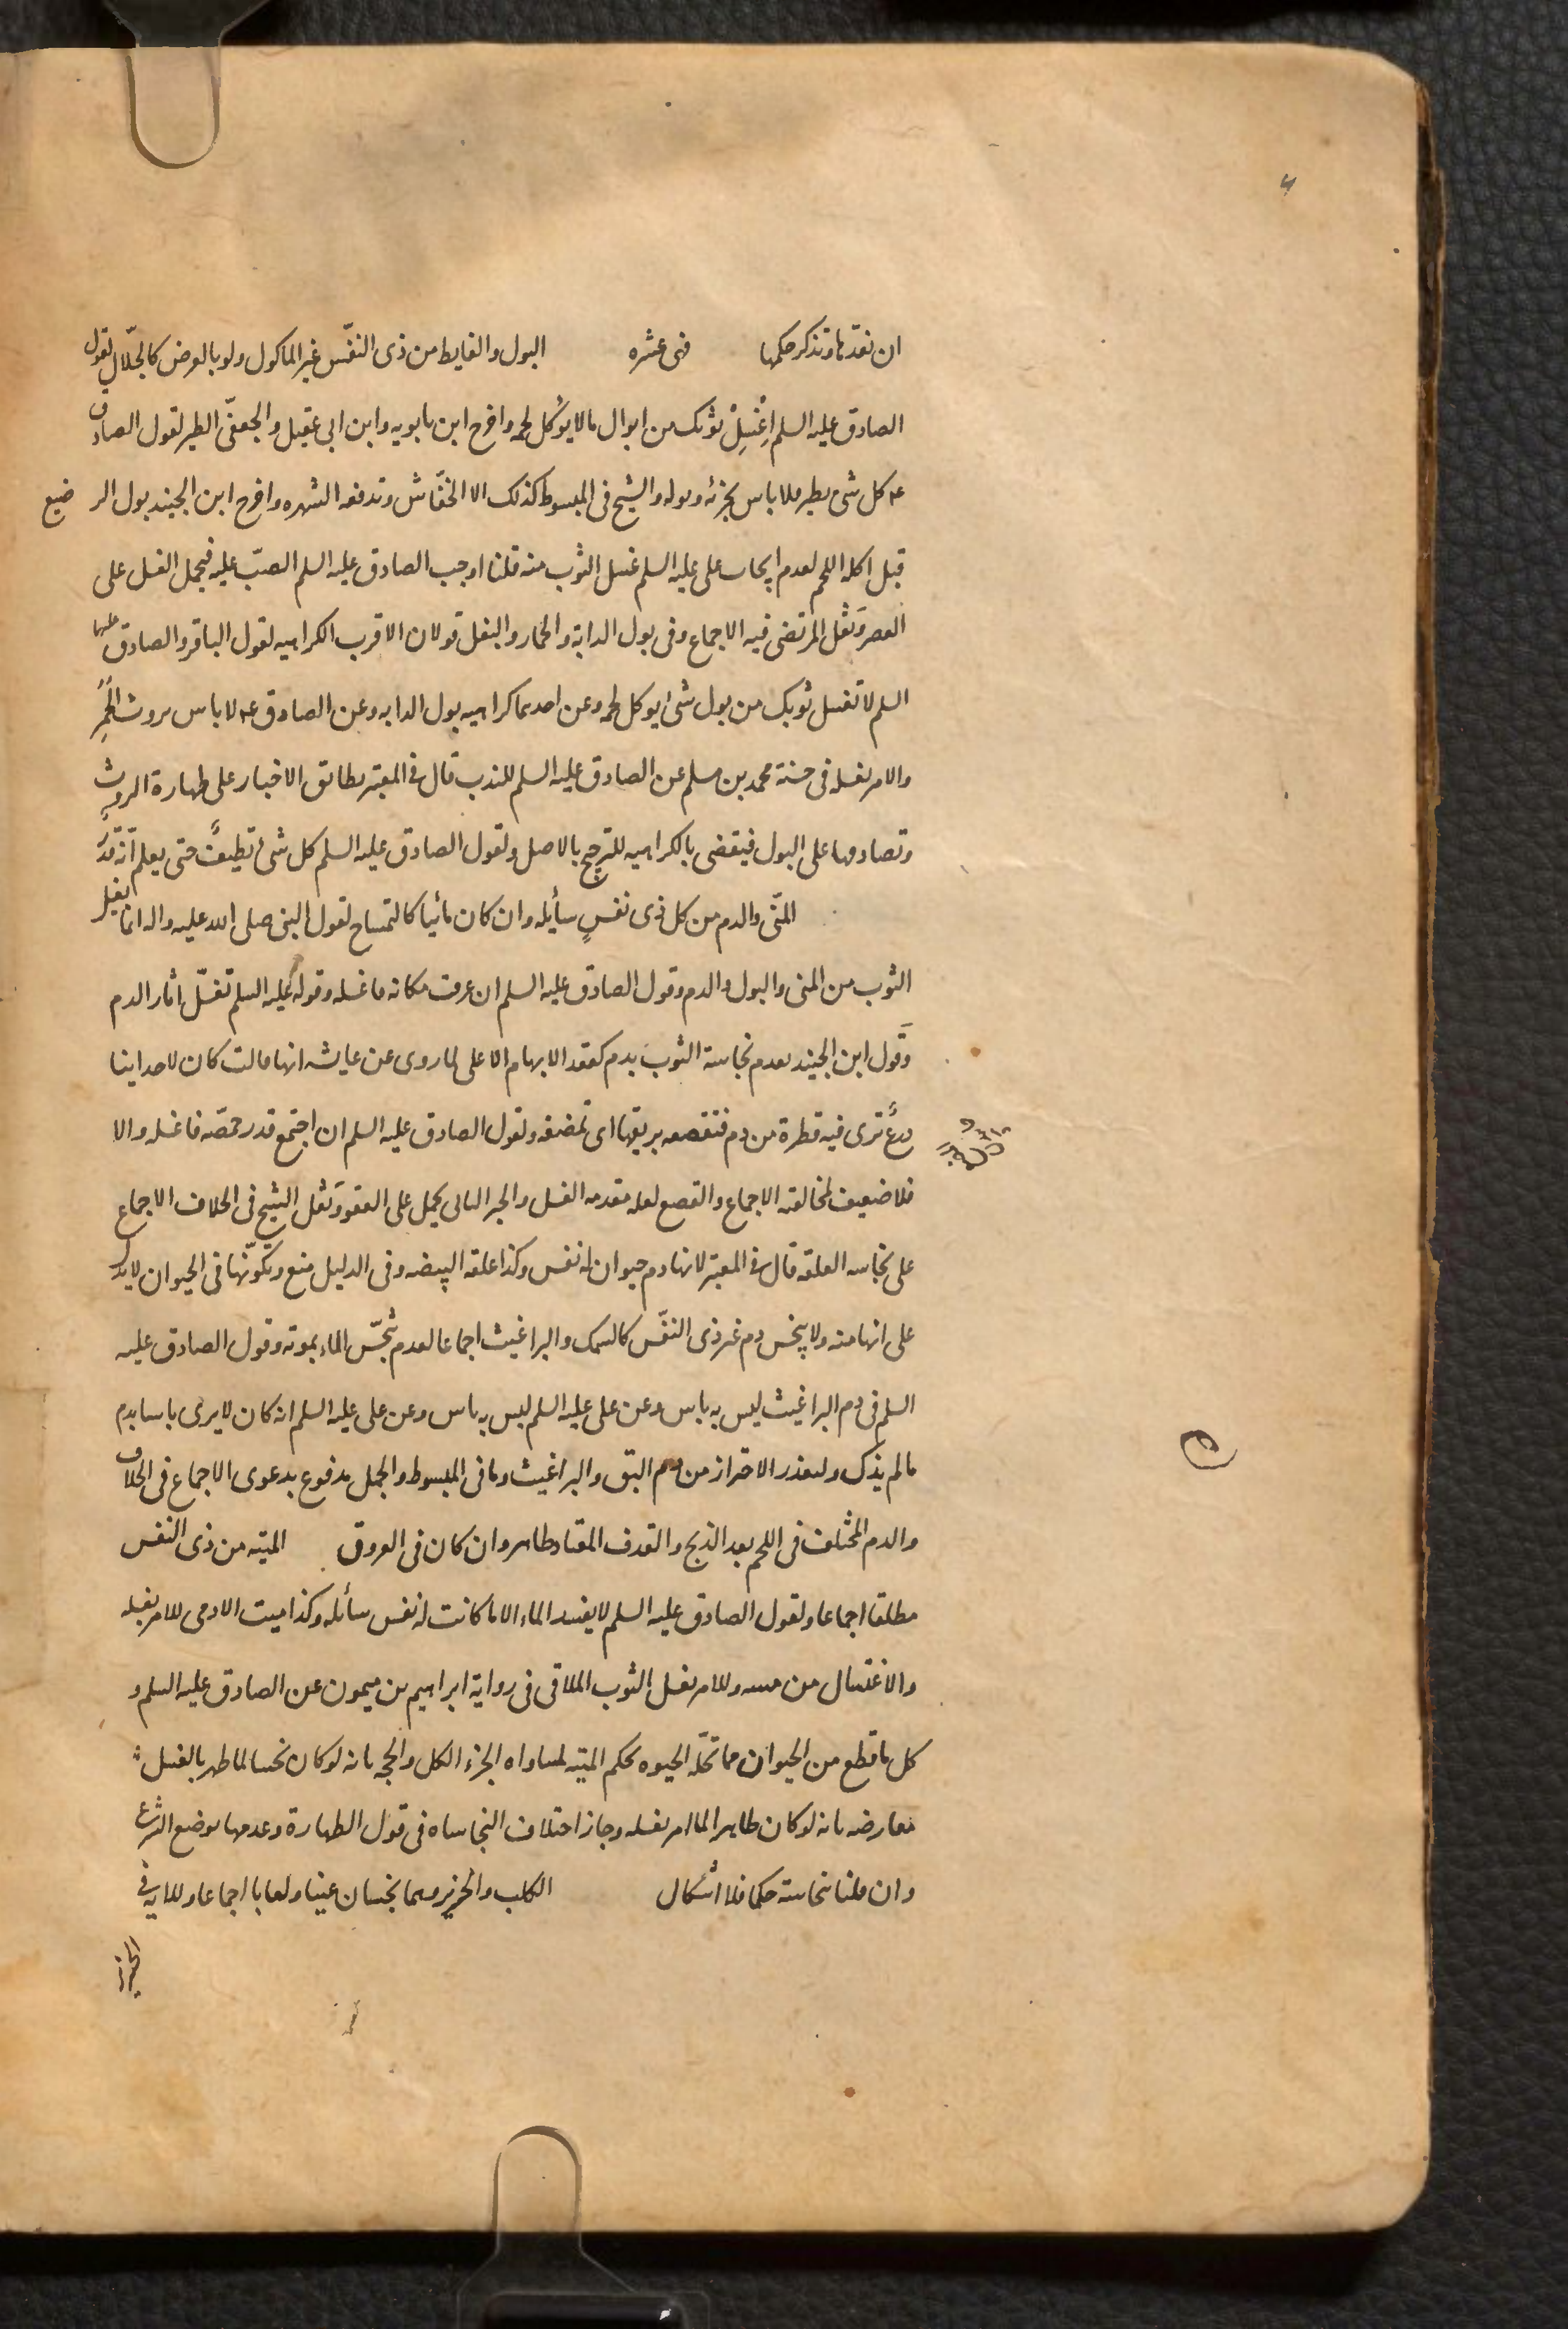 ان نعدها ونذكر حكمها فهى عشره البول والغايط من ذى النفس غير الماكول ولو بالعرض كالجلّال لقول
الصادق عليه السلم اِغْسِلْ ثوبك من ابوال مالا يؤكل لحمه واخرج ابن بابويه وابن ابى عقيل والجعفى الطير لقول الصادق
ع كل شى يطير فلا باس بخرئه وبوله والشيخ فى المبسوط كذلك الا الخفّاش وتدفعه الشهره واخرج ابن الجنيد بول الرضيع
قبل اكله اللحم لعدم ايجاب على عليه السلم غسل الثوب منه قلنا اوجب الصادق عليه السلم الصبّ عليه فيحمل الغسل على
العصر ونقل المرتضى فيه الاجماع وفى بول الدابة والحمار والبغل قولان الاقرب الكراهيه لقول الباقر والصادق عليهما
السلم لا تغسل ثوبك من بول شئ يوكل لحمه وعن احدهما كراهيه بول الدابه وعن الصادق ع لا باس بروث الحُمُرِ
والامر بغسله فى حسنة محمد بن مسلم عن الصادق عليه السلم للندب قال فى المعتبر تطابق الاخبار على طهارة الروث
وتصادمها على البول فيقضى بالكراهيه للترجيح بالاصل ولقول الصادق عليه السلم كل شئ نظيفٌ حتى يعلم انه قذر
المنّى والدم من كل ذى نفسٍ سأيله وان كان مائيا كالتمساح لقول النبى صلى الله عليه واله انما يغسل
الثوب من المنى والبول والدم وقول الصادق عليه السلم ان عرفت مكانه فاغسله وقوله عليه السلم تغسل اثار الدم
وقول ابن الجنيد بعدم نجاسة الثوب بدم كعقد الابهام الاعلى لما روى عن عايشه انها قالت كان لاحداينا
درعٌ ترى فيه قطرة من دم فتقصعه بريقها اى تمضغه ولقول الصادق عليه السلم ان اجتمع قدر حمّصه فاغسله والا
فلا ضعيف لمخالفته الاجماع والقصع لعله مقدمه الغسل والخبر التالى يحمل على العفو ونقل الشيخ فى الخلاف الاجماع
على نجاسه العلقه قال فى المعتبر لانها دم حيوان له نفس وكذا علقه البيضه وفى الدليل منع وتكوّنها فى الحيوان لا يدل
على انها منه ولا ينجس دم غير ذى النفس كالسمك والبراغيث اجماعا لعدم نجّس الماء بموته وقول الصادق عليه
السلم فى دم البراغيث ليس به باس وعن على عليه السلم ليس به باس وعن على عليه السلم انه كان لا يرى باسا بدم
ما لم يذك ولتعذر الاحتراز من دم البق والبراغيث وما فى المبسوط والجمل مدفوع بدعوى الاجماع فى الخلاف
والدم المختلف فى اللحم بعد الذبح والقذف المعتاد طاهر وان كان فى العروق الميته من ذى النفس
مطلقا اجماعا ولقول الصادق عليه السلم لا يفسد الماء الا ما كانت له نفس سأئله وكذا ميت الادمى للامر بغسله
والاغتسال من مسه وللامر بغسل الثوب الملاقى فى رواية ابراهيم بن ميمون عن الصادق عليه السلم و
كل ما قطع من الحيوان مما تحلّه الحيوه بحكم الميته لمساواه الجزء الكل والحجه بانه لو كان نجسا لما طهر بالغسل
معارضه بانه لو كان طاهرا لما امر بغسله وجاز اختلاف النجاساه فى قبول الطهارة وعدمها بوضع الشرع
وان قلنا نجاسته حكما فلا اشكال الكلب والخنزير وهما نجسان عينا ولعابا اجماعا وللايه فى
الخنزير